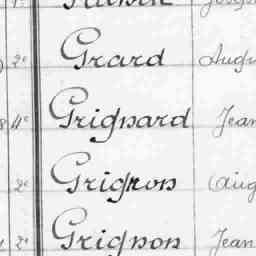 2e Grard Augu
4e Grignard Jean
2e Grignon Aug
2e Grignon Jean